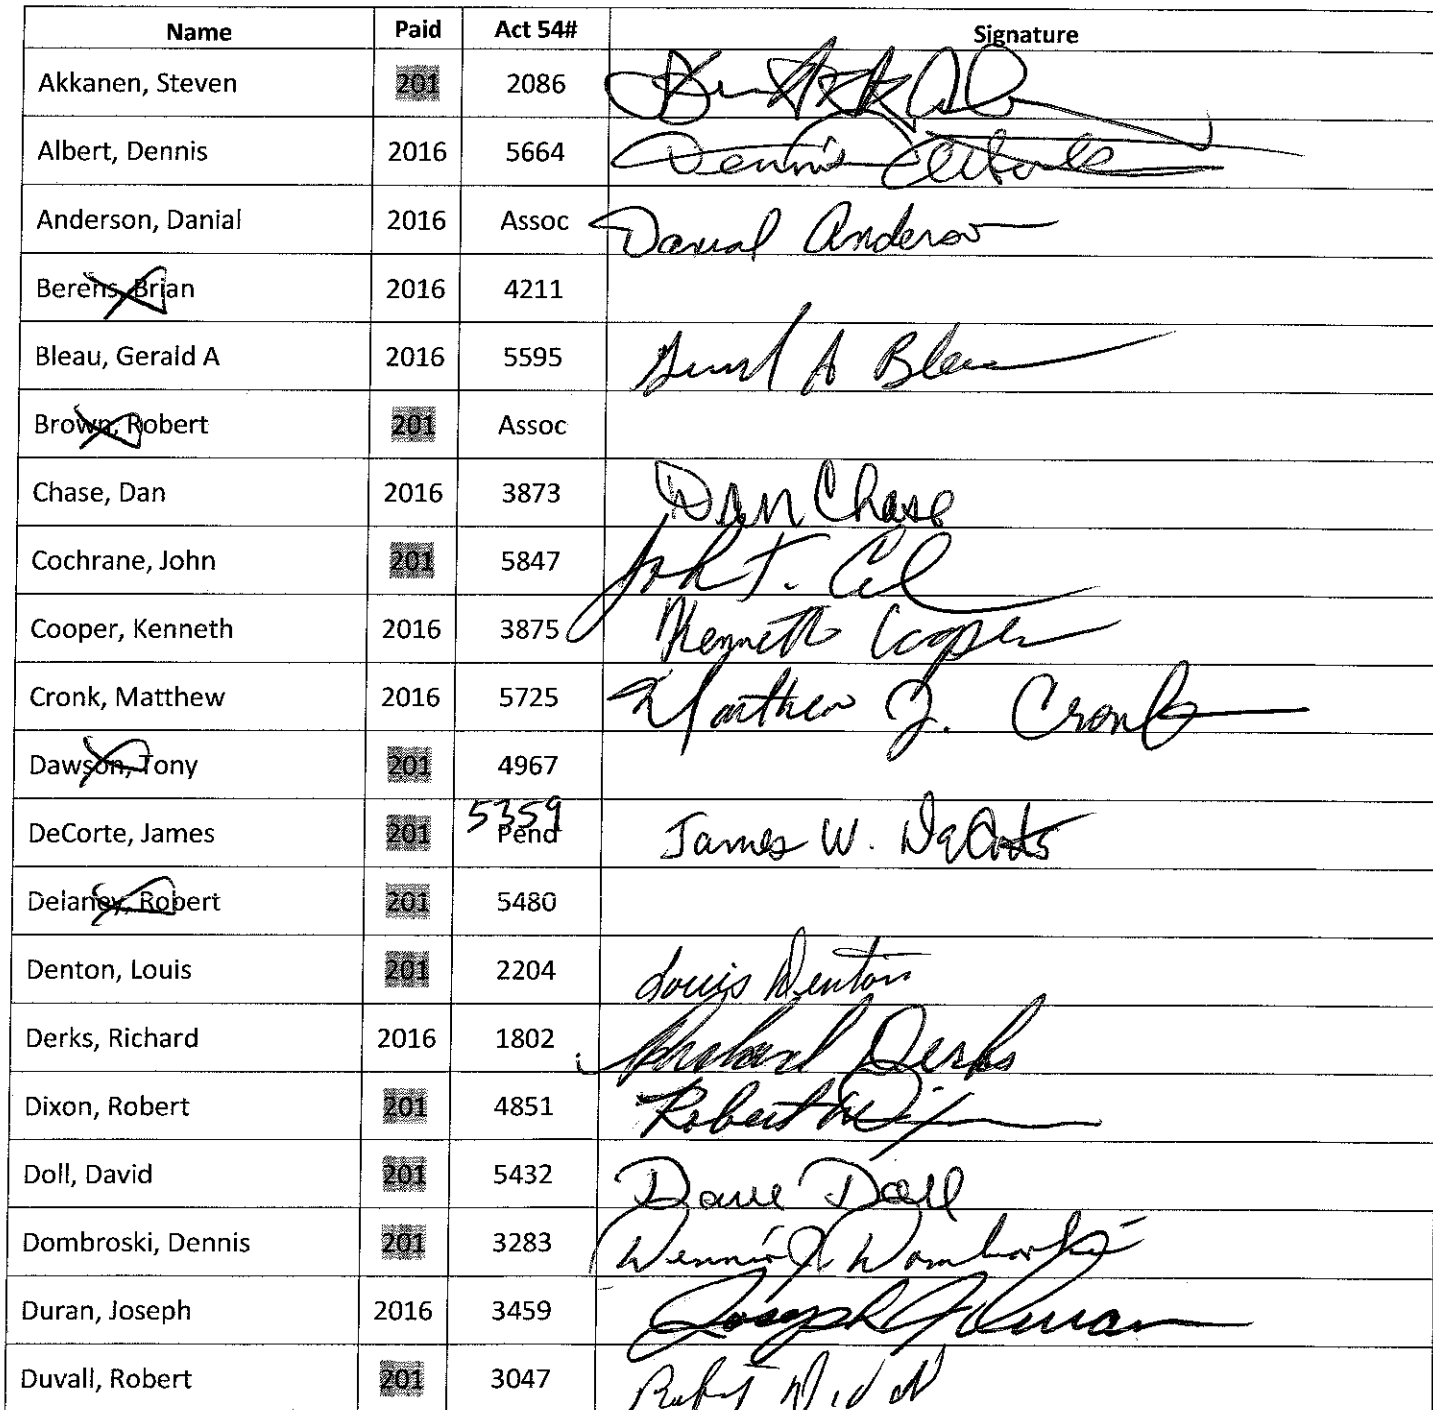 Name Paid Act 54# Signature
Akkanen, Steven 201 2086
Albert, Dennis 2016 5664 Dennis Albert
Anderson, Danial 2016 Assoc Danial Anderson
Berens, Brian 2016 4211
Bleau, Gerald A 2016 5595 Gerald A Bleau
Brown, Robert 201 Assoc
Chase, Dan 2016 3873 Dan Chase
Cochrane, John 201 5847 John T.
Cooper, Kenneth 2016 3875 Kenneth Cooper
Cronk, Matthew 2016 5725 Matthew J. Cronk
Dawson, Tony 201 4967
5359
DeCorte, James 201 Pend James W. DeCorte
Delaney, Robert 201 5480
Denton, Louis 201 2204 Louis Denton
Derks, Richard 2016 1802 Richard Derks
Dixon, Robert 201 4851 Robert
Doll, David 201 5432 Dave Doll
Dombroski, Dennis 201 3283 Dennis J Dombroski
Duran, Joseph 2016 3459 Joseph J Duran
Duvall, Robert 201 3047